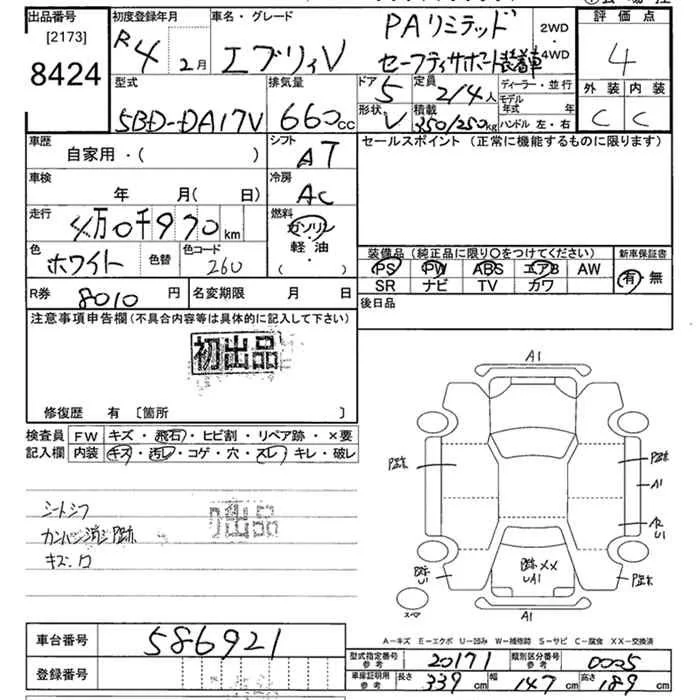 出品番号 [2173] 8424
初度登録年月 R4 2月
車名・グレード エブリィV PAリミテッド
セーフティサポート装着車
2WD・4WD
評価点 4
外装 内装
C C
型式 5BD-DA17V
排気量 660cc
ドア 5
定員 2/4人
形状 V
積載 350/250kg
ディーラー・並行
モデル年式 年
ハンドル 左・右
車歴 自家用・( )
シフト AT
セールスポイント (正常に機能するものに限ります)
車検 年 月( 日)
冷房 AC
走行 4万0千970km
燃料 ガソリン・軽油 ・( )
色 ホワイト 色替 色コード 26U
装備品 (純正品に限り○をつけてください)
新車保証書
PS PW ABS エアB AW
SR ナビ TV カワ
有・無
R券 8010円
名変期限 月 日
後日品
注意事項申告欄(不具合内容等は具体的に記入して下さい)
初出品
修復歴 有 〔箇所 〕
検査員記入欄
FW キズ・飛石・ヒビ割・リペア跡・×要
内装 キズ・汚レ・コゲ・穴・スレ・キレ・破レ
シートシワ
カンバン消シP跡
キズ・凹
出品
A1
P跡
P跡
A1
A2
U1
P跡
U1
P跡 XX
UA1
P跡
スペア
A1
A-キズ E-エクボ U-凹み W-補修跡 S-サビ C-腐食 XX-交換済
車台番号 586921
登録番号
型式指定番号 参考 20171
類別区分番号 参考 0005
車庫証明用 参考 長さ 339cm 幅 147cm 高さ 189cm